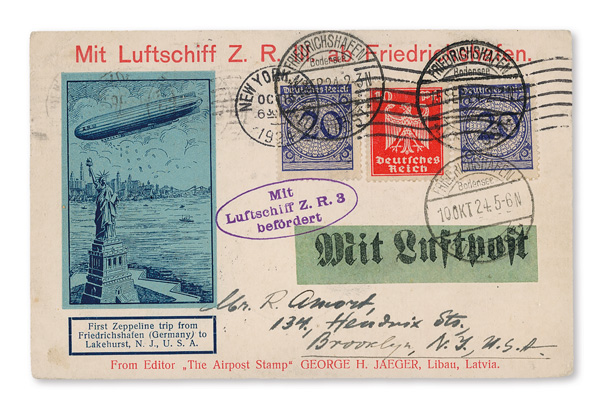 Mit Luftschiff Z. R. ab Friedrichshafen.
FRIEDRICHSHAFEN
Bodensee
FRIEDRICHSHAFEN
Bodensee
NEW YORK
OC
6
Deutsches Reich
20
Deutsches
Reich
Deutsches Reich
20
Bodensee
10 OKT 24. 5-6 N
Mit
Luftschiff Z. R. 3
befördert
Mit Luftpost
Mr. R. Amort,
134, Hendrix Str,
Brooklyn, N. Y., U.S.A.
First Zeppeline trip from
Friedrichshafen (Germany) to
Lakehurst, N. J., U. S. A.
From Editor „The Airpost Stamp“ GEORGE H. JAEGER, Libau, Latvia.